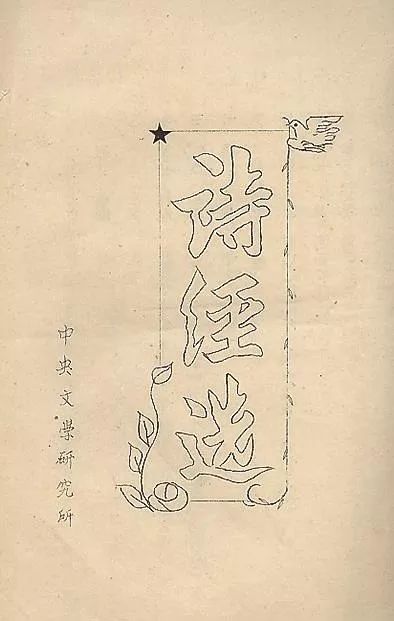 诗经选
中央文学研究所